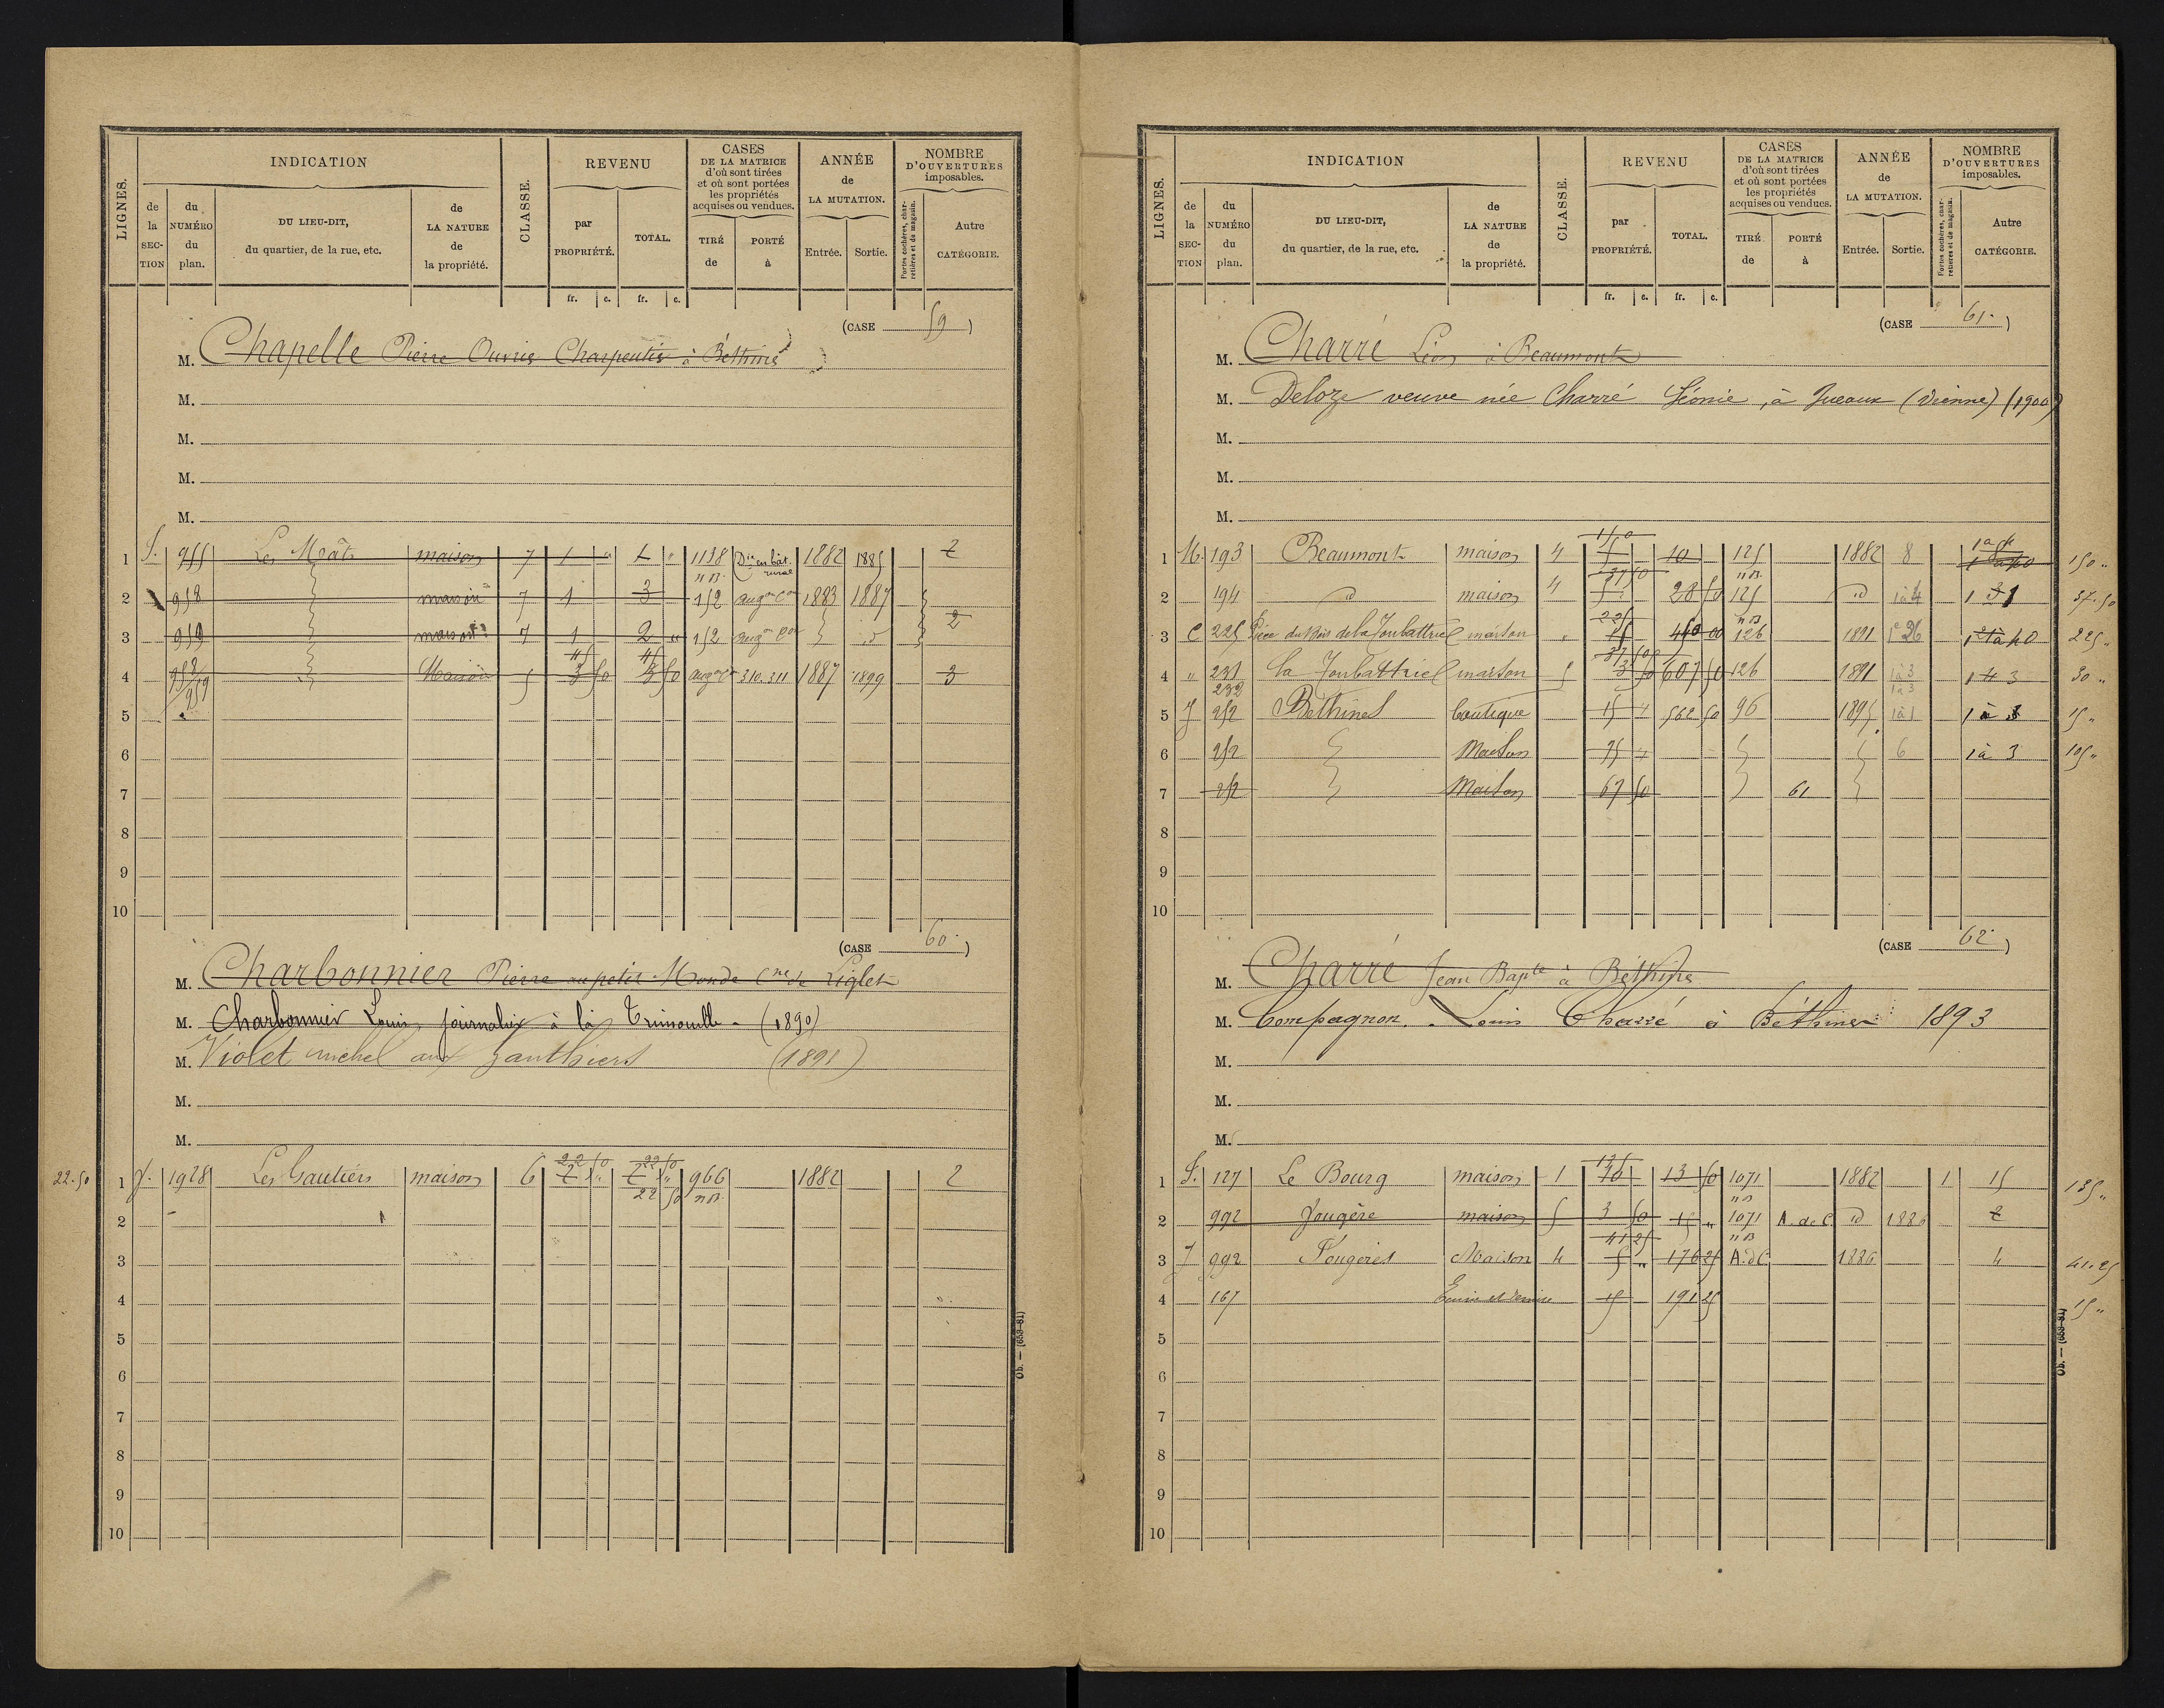 LIGNES.
INDICATION
CLASSE.
REVENU
CASES
DE LA MATRICE
d'où sont tirées
et où sont portées
les propriétés
acquises ou vendues.
ANNÉE
de
LA MUTATION.
NOMBRE
D'OUVERTURES
imposables.
de la SECTION
du NUMÉRO du plan.
DU LIEU-DIT,
du quartier, de la rue, etc.
de LA NATURE de la propriété.
par PROPRIÉTÉ.
TOTAL.
TIRÉ de
PORTÉ à
Entrée.
Sortie.
Portes cochères, charretières et de magasin.
Autre CATÉGORIE.
fr. c. fr. c.
(CASE 59)
M. Chapelle Pierre Ouvrier Charpentier à Béthines
M.
M.
M.
M.
1 S. 955 Les Mâts maison 7 1 " 1 " 1138 Don en bât. rural 1882 1885 2
n B.
2 958 maison 7 1 3 152 augon Con 1883 1887
3 959 maison 7 1 2 " 152 augon Con id 2
45 45
4 958/959 Maison 5 3 50 3 50 augon Con 310.311 1887 1899 3
5
6
7
8
9
10
(CASE 60)
M. Charbonnier Pierre au petit Monde Cne de Liglet
M. Charbonnier Louis, journalier à la Trimouille - (1890)
M. Violet michel aux Gauthiers (1891)
M.
M.
22 50 22 50
22.50 1 J. 1928 Les Gautiers maison 6 2 " 2 " 966 1882 2
22 50 n B.
2
3
4
5
6
7
8
9
10
Ob. — (653-81)
LIGNES.
INDICATION
CLASSE.
REVENU
CASES
DE LA MATRICE
d'où sont tirées
et où sont portées
les propriétés
acquises ou vendues.
ANNÉE
de
LA MUTATION.
NOMBRE
D'OUVERTURES
imposables.
de la SECTION
du NUMÉRO du plan.
DU LIEU-DIT,
du quartier, de la rue, etc.
de LA NATURE de la propriété.
par PROPRIÉTÉ.
TOTAL.
TIRÉ de
PORTÉ à
Entrée.
Sortie.
Portes cochères, charretières et de magasin.
Autre CATÉGORIE.
fr. c. fr. c.
(CASE 61)
M. Charré Léon à Beaumont
M. Deloze veuve née Charré Léonie, à Queaux (Vienne) (1900)
M.
M.
M.
150
1 M. 193 Beaumont maison 4 10 125 1882 8 150 "
37 50 n B.
2 194 id maison 4 5 28 50 125 id 1 à 4 37.50
225 n B
3 C 225 Pièce du Bois de la Joubattrie maison " 450 00 126 1891 26 225 "
37 50
4 " 231 232 La Joubattrie maison 5 3 50 607 50 126 1891 1 à 3 30 "
5 J 252 Béthines boutique 15 " 562 50 96 1895 1 à 1 15 "
6 252 Maison 75 " 6 1 à 3 105 "
7 252 Maison 67 50 61
8
9
10
(CASE 62)
M. Charré Jean Bapte à Béthines
M. Compagnon. Louis Charré à Béthines 1893
M.
M.
M.
135
1 S. 127 Le Bourg maison 1 10 13 50 1071 1882 1 15 135 "
n B
2 992 Fougère maison 5 3 50 15 " 1071 A. de C. id 1886 2
41 25 n B
3 J 992 Fougères Maison 4 5 " 176 25 A. d C. 1886 4 41.25
4 167 15 191 25 15 "
5
6
7
8
9
10
Ob. — (653-81)